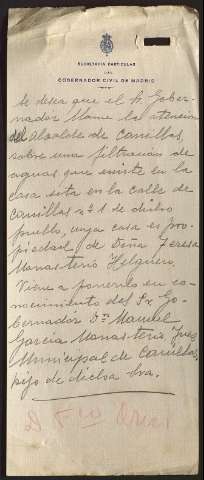 SECRETARIA PARTICULAR
DEL
GOBERNADOR CIVIL DE MADRID
Se desea que el Sr. Gober-
nador llame la atención
del Alcalde de Canillas,
sobre una filtración de
aguas que existe en la
casa sita en la calle de
Canillas nº 1 de dicho
pueblo, cuya casa es pro-
piedad de Doña Teresa
Monasterio Helguero.
Viene a ponerlo en co-
nocimiento del Sr. Go-
bernador Dn Manuel
García Monasterio, Juez
Municipal de Canillas,
hijo de dicha Sra.
D. Fco